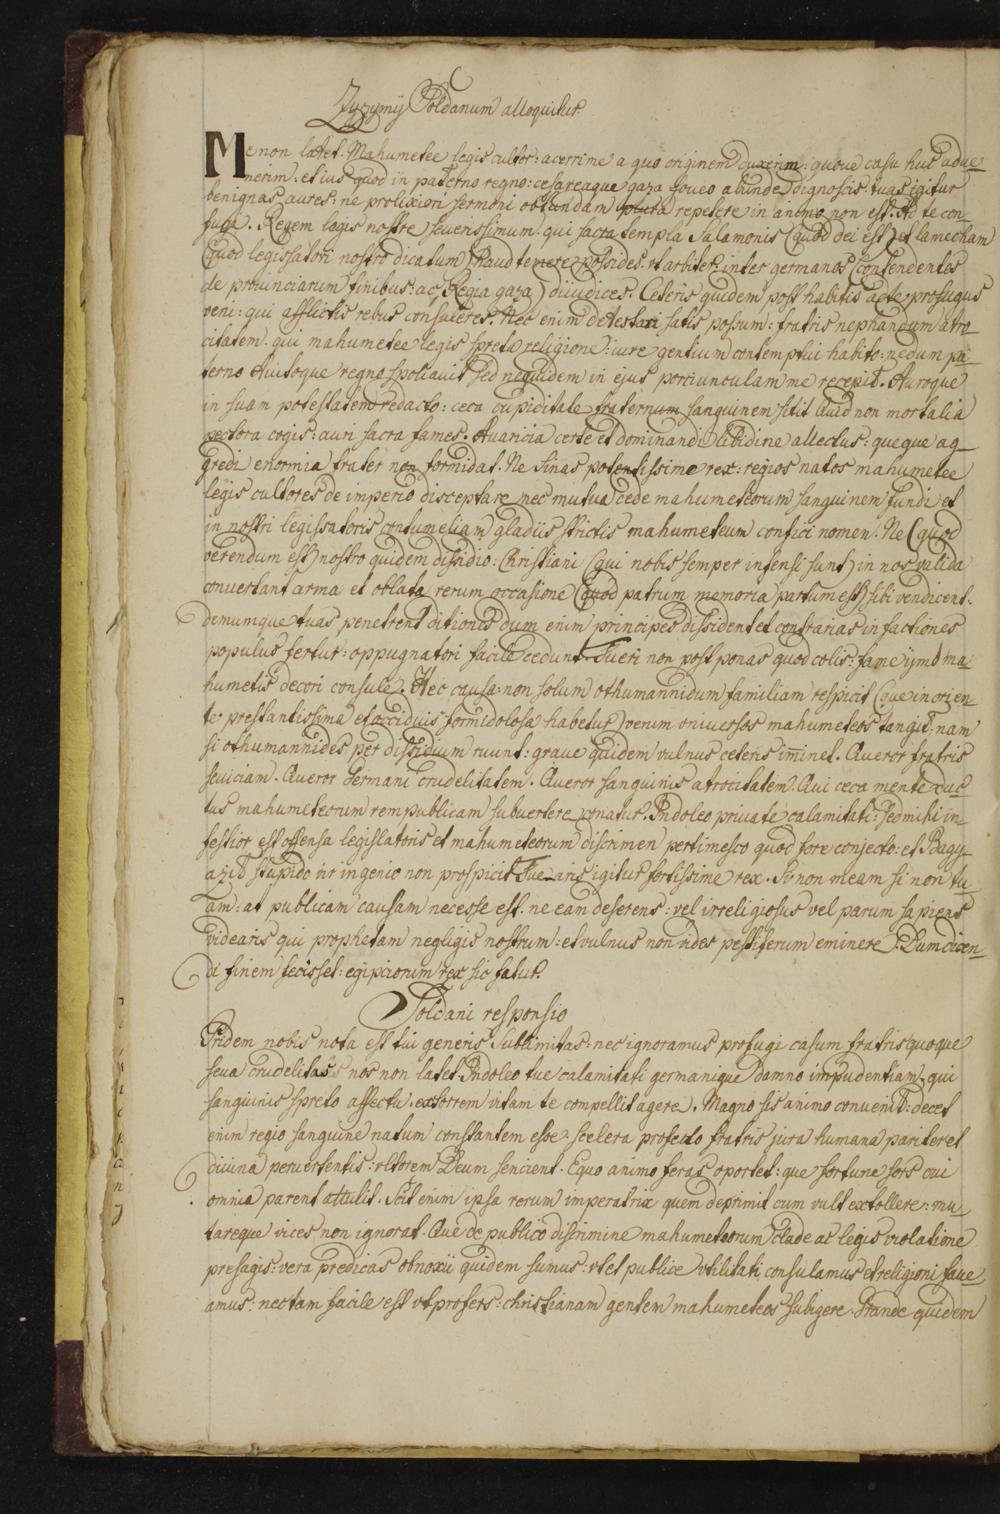 Zyzymij Soldanum alloquitur.
Me non latet. Mahumetee legis cultor: acerrime a quo originem duxerim: quoue casu huc adue
nerim. et ius quod in paterno regno: cesareaque gaza foueo abunde dignoscis. tuas igitur
benignas aures: ne prolixiori sermoni obtundam plura repetere in animo non est. Ad te con
fuga. Regem legis nostre seuerissimum. qui sacra templa Salamonis (quod dei est) et lamecham
(quod legislatori nostro dicatum) haud temere possides. vt arbiter inter germanos (contendentes
de prouinciarum finibus: ac Regia gaza) diiudices. Ceteris quidem post habitis ad te profugus
veni: qui afflictis rebus consuleres. Nec enim detestari satis possum: fratris nephandam atro
citatem. qui mahumetee legis spreta religione: iure gentium contemptui habito: nedum pa
terno Auitoque regno spoliauit sed nequidem in ejus portiunculam me recepit. Auroque
in suam potestatem redacto: ceca cupiditate fraternum sanguinem sitit Quid non mortalia
pectora cogis: auri sacra fames. Auaricia certe et dominandi libidine allectus: queque ag
gredi enormia frater non formidat. Ne sinas potentissime rex: regios natos mahumetee
legis cultores de imperio disceptare nec mutua cede mahumeteorum sanguinem fundi et
in nostri legislatoris contumeliam gladiis strictis mahumeteum confici nomen. Ne (quod
verendum est) nostro quidem dissidio: Christiani (qui nobis semper infensi sunt) in nos valida
conuertant arma et oblata rerum occasione (quod patrum memoria partum est) sibi vendicent.
demumque tuas penetrent ditiones dum enim principes dissident et contrarias in factiones
populus fertur: oppugnatori facile cedunt. Fueri non post ponas quod colis: fame ymo ma
humetis decori consule. Hec causa non solum othumannidum familiam respicit (que in orien
te prestantissima et occiduis formidolosa habetur) verum vniuersos mahumeteos tangit: nam
si othumannides per dissidium ruunt: graue quidem vulnus ceteris iminet. Queror fratris
seuiciam. Queror Germani crudelitatem. Queror sanguinis atrocitatem. Qui ceca mente duc
tus mahumeteorum rempublicam subuertere conatur. Indoleo priuate calamitati: sed mihi in
festior est offensa legislatoris et mahumeteorum discrimen pertimesco quod fore conjecto: et Bagy
azit stupido vir ingenio non prospicit Tuearis igitur fortissime rex. Si non meam si non tu
am: at publicam causam necesse est. ne ean deserens: vel irreligiosus vel parum sapiens
videaris qui prophetam negligis nostrum: et vulnus non vides pestiferum eminere. Dum dicen
di finem fecisset: egipciorum rex sic fatur.
Soldani responsio
Pridem nobis nota est tui generis Sublimitas: nec ignoramus profugi casum fratris quoque
seua crudelitas nos non latet. Indoleo tue calamitati germanique damno impudentiam. qui
sanguinis spreto affectu. extorrem vitam te compellit agere. Magno sis animo conuenit: decet
enim regio sanguine natum constantem esse. scelera profecto fratris jura humana pariter et
diuina peruertentis: vltorem Deum sencient. Equo animo feras oportet: que fortune fors cui
omnia parent attulit. Scit enim ipsa rerum imperatrix quem deprimit cum vult extollere: mu
tareque vices non ignorat. Que de publico discrimine mahumeteorum clade ac legis violatione
presagis: vera predicas obnoxii quidem sumus: vt et publice vtilitati consulamus et religioni faue
amus: nec tam facile est vt profers: christianam gentem mahumeteos subigere. Grande quidem